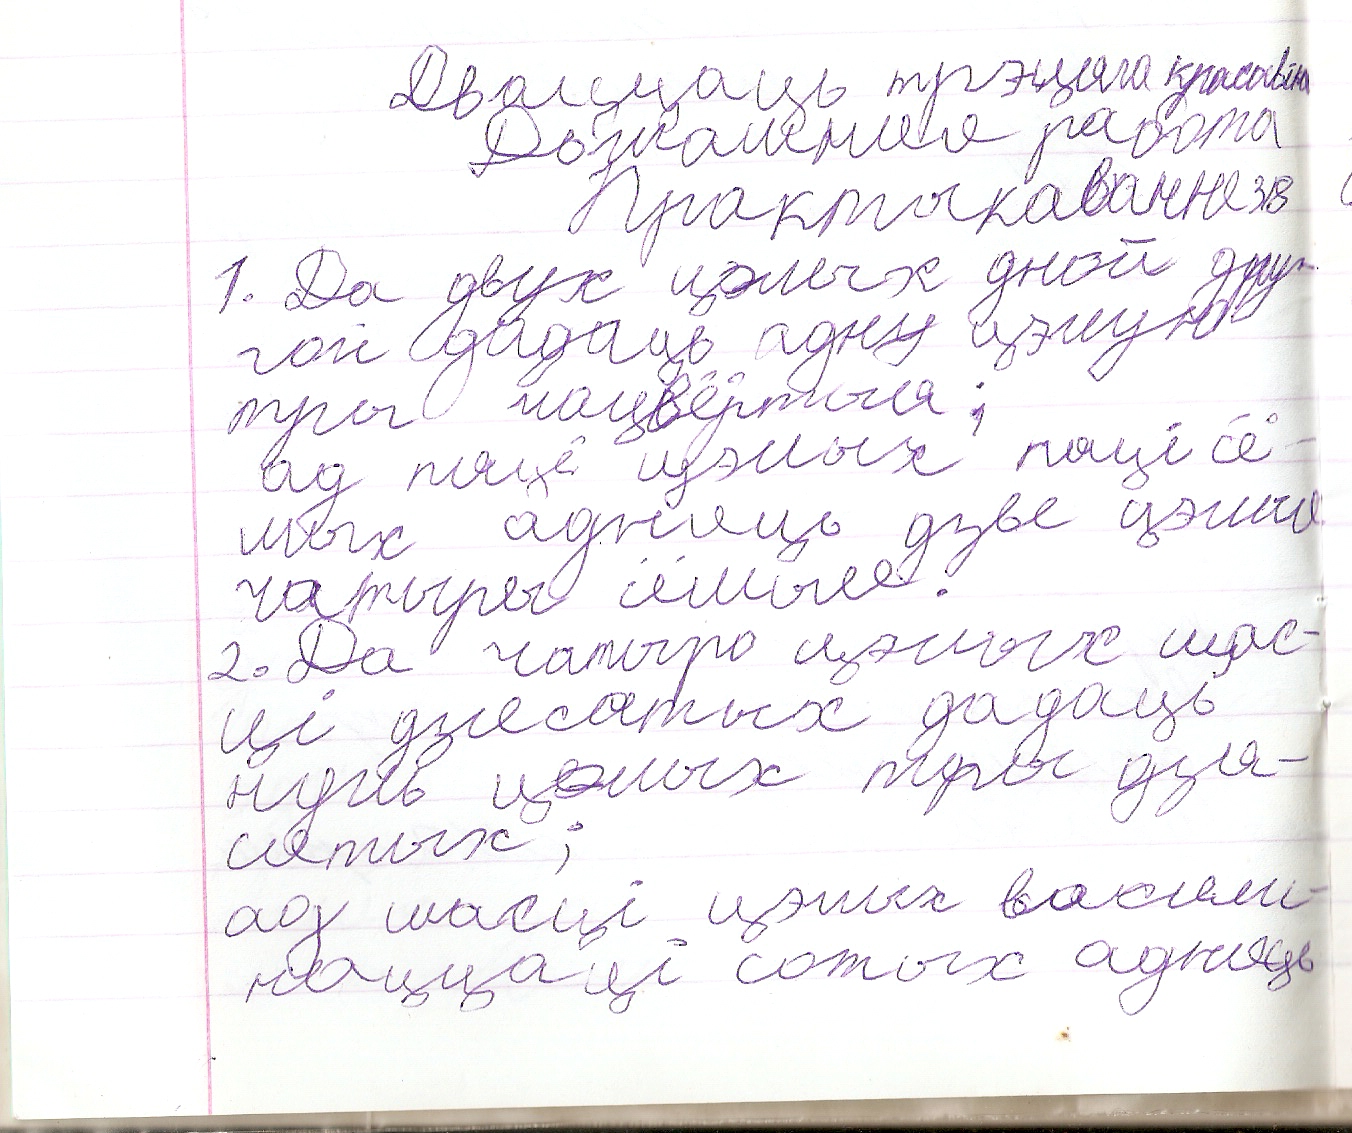 Дваццаць трэцяга красавіка
Дамашняя работа
Практыкаванне 38
1. Да двух цэлых дной дру-
гой дадаць адну цэлую
тры чацвёртыя;
ад пяці цэлых пяці сё-
мых адняць дзве цэлыя
чатыры сёмыя.
2. Да чатыро цэлых шас-
ці дзесятых дадаць
нуль цэлых тры дзя-
сятых;
ад шасці цэлых васям-
наццаці сотых адняць